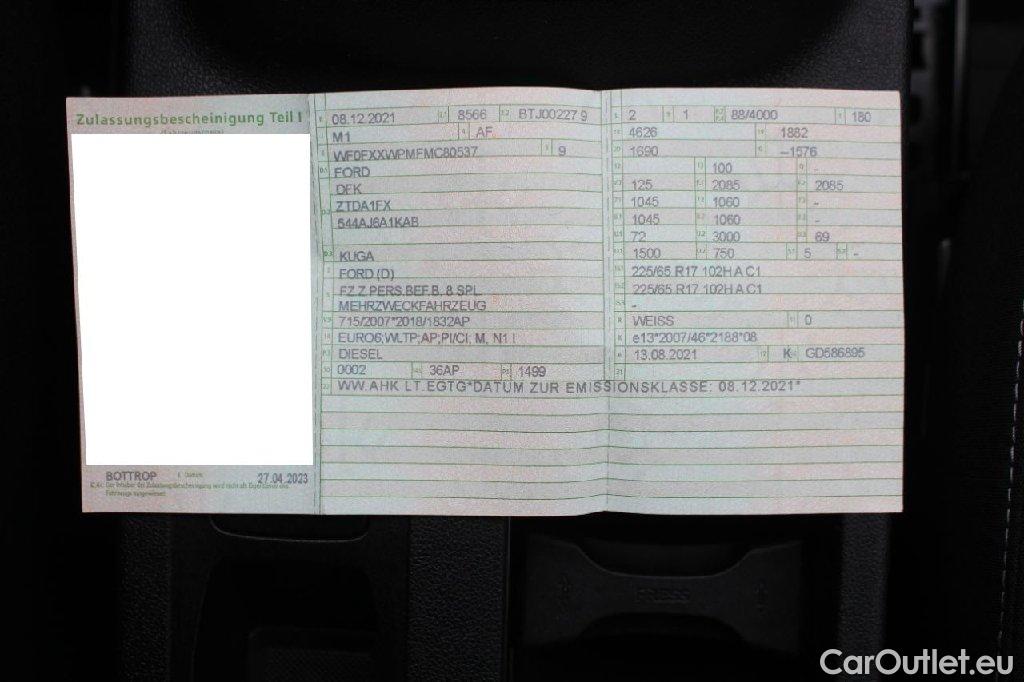 Zulassungsbescheinigung Teil I
08.12.2021 8566 BTJ00227 9
M1 AF
WF0FXXWPMFMC80537 9
FORD
DFK
ZTDA1FX
544AJ6A1KAB
KUGA
FORD (D)
FZ.Z.PERS.BEF.B. 8 SPL
MEHRZWECKFAHRZEUG
715/2007*2018/1832AP
EURO6;WLTP;AP;PI/CI; M, N1 I
DIESEL
0002 36AP 1499
WW.AHK LT.EGTG*DATUM ZUR EMISSIONSKLASSE: 08.12.2021*
2 1 88/4000 180
4626 1882
1690 –1576
100 -
125 2085 2085
1045 1060 -
1045 1060 -
72 3000 69
1500 750 5 -
225/65 R17 102H A C1
225/65 R17 102H A C1
-
WEISS 0
e13*2007/46*2188*08
13.08.2021 K GD586895
BOTTROP 27.04.2023
CarOutlet.eu